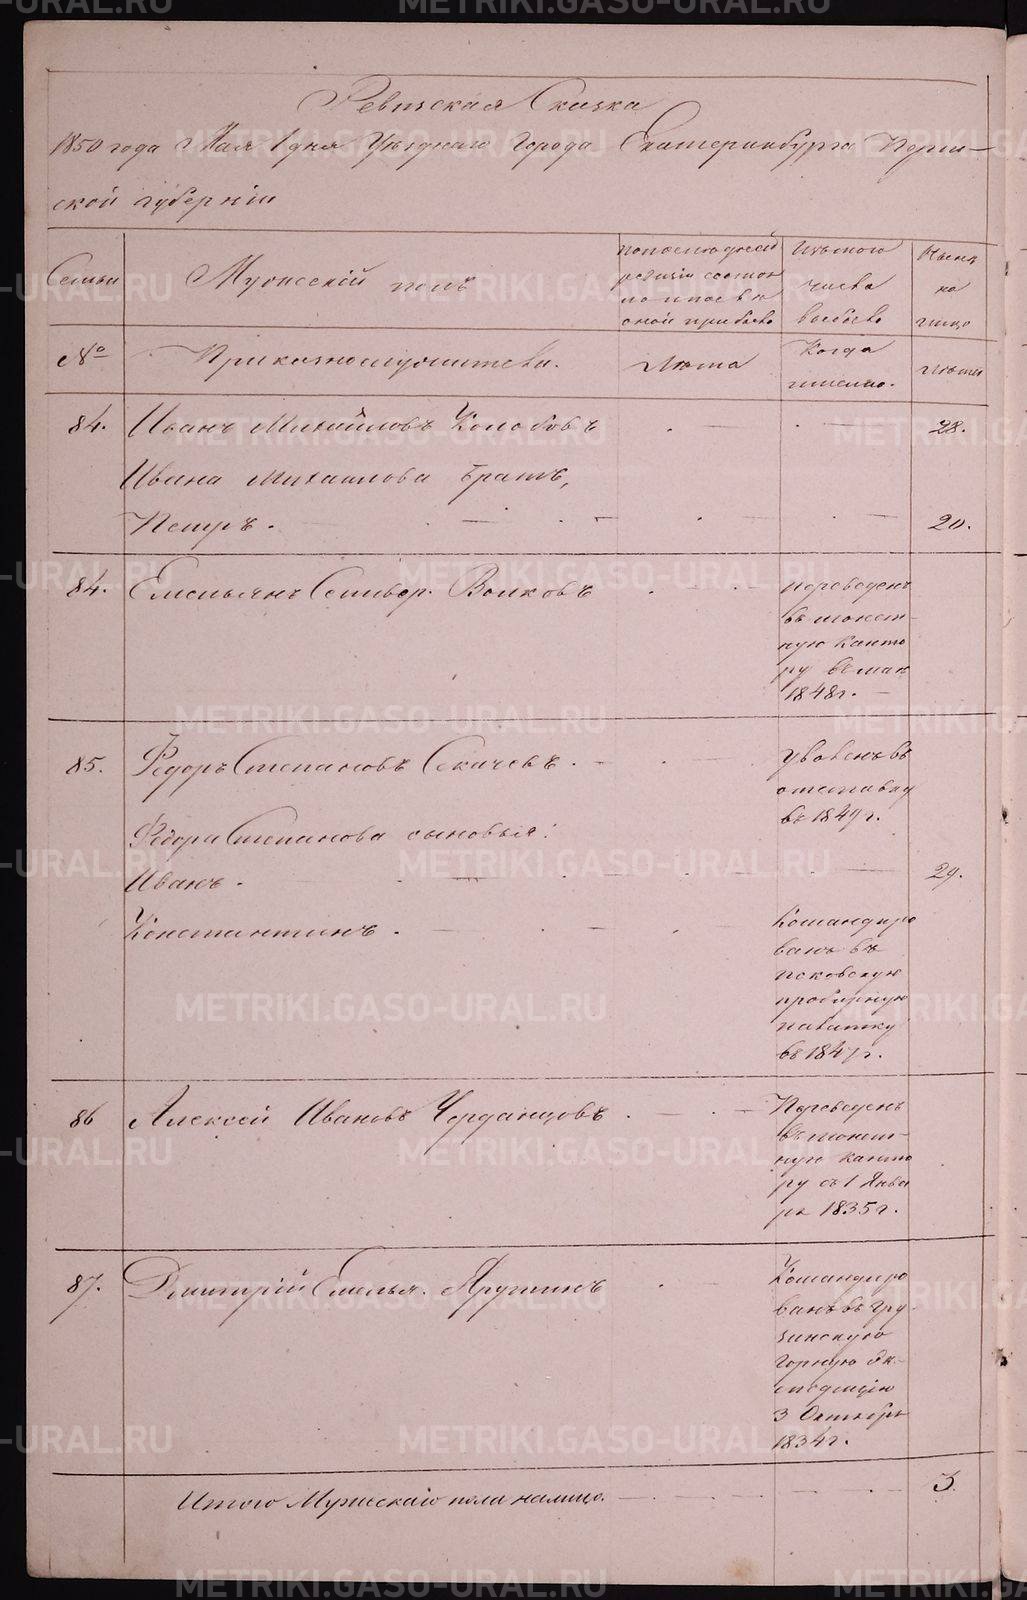 Ревизская Сказка
1850 года Мая 1 дня Уезднаго Города Екатеринбурга Перм-
ской губерніи
Семьи
Мужескій полъ
по последней
ревизіи состоя
ло и после
оной прибыло
Изъ того
числа
выбыло
Ныне
на
лицо
№
Приказнослужители.
Лета
Когда
именно.
Лета
84. Иванъ Михайловъ Колобовъ 28.
Ивана Михайлова братъ,
Петръ. 20.
84. Емельянъ Селивер. Волковъ
переведенъ
въ монет-
ную канто
ру въ мае
1848 г.
85. Федоръ Степановъ Секачевъ.
уволенъ въ
отставку
въ 1847 г.
Федора Степанова сыновья:
Иванъ. 29.
Константинъ.
Командиро
ванъ въ
псковскую
пробирную
палатку
въ 1847 г.
86 Алексей Ивановъ Черданцовъ
Переведенъ
въ монет-
ную канто
ру съ 1 Янва
ря 1835 г.
87. Дмитрій Емелья. Яругинъ
Командиро
ванъ въ Гру
зинскую
горную эк-
спедицію
3 Октября
1834 г.
Итого Мужескаго пола налицо. 3.
METRIKI.GASO-URAL.RU